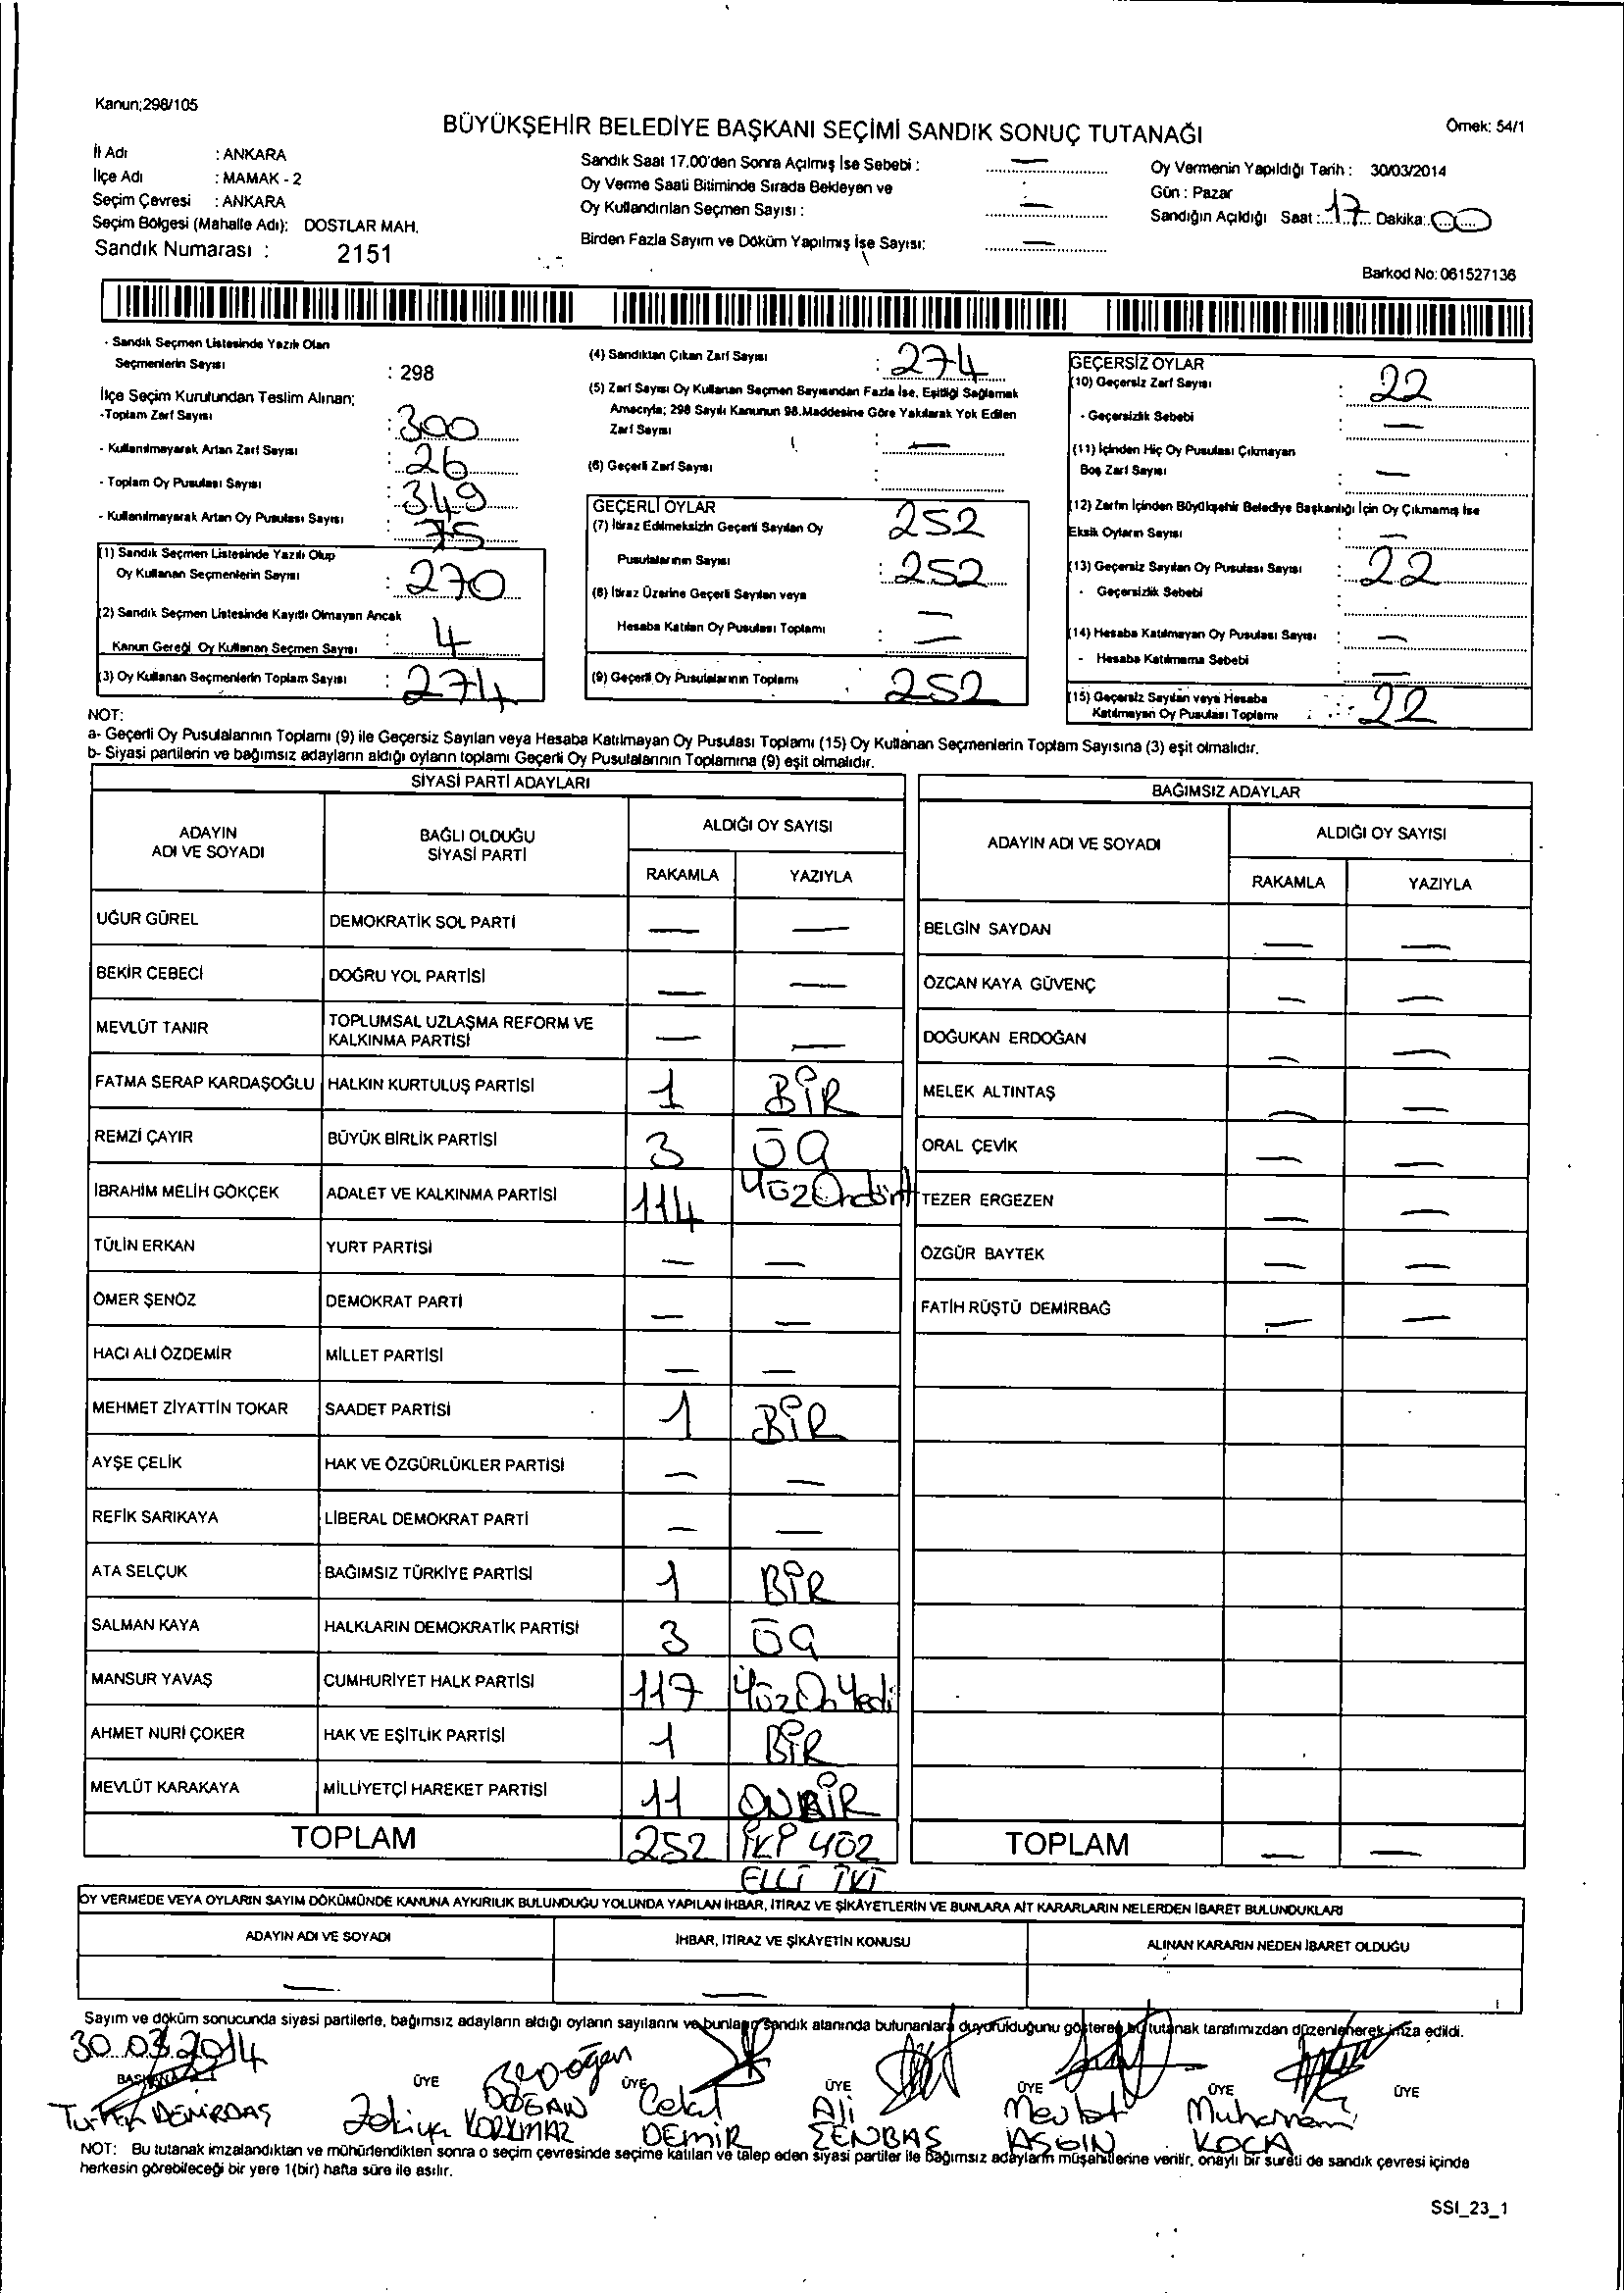 Kanun;298/105
BÜYÜKŞEHİR BELEDİYE BAŞKANI SEÇİMİ SANDIK SONUÇ TUTANAĞI
Örnek: 54/1
İl Adı : ANKARA
İlçe Adı : MAMAK - 2
Seçim Çevresi : ANKARA
Seçim Bölgesi (Mahalle Adı): DOSTLAR MAH.
Sandık Numarası : 2151
Sandık Saat 17.00'den Sonra Açılmış İse Sebebi : —
Oy Verme Saati Bitiminde Sırada Bekleyen ve
Oy Kullandırılan Seçmen Sayısı : —
Birden Fazla Sayım ve Döküm Yapılmış İse Sayısı: —
Oy Vermenin Yapıldığı Tarih : 30/03/2014
Gün : Pazar
Sandığın Açıldığı Saat : 17 Dakika: 00
Barkod No: 061527136
- Sandık Seçmen Listesinde Yazılı Olan
Seçmenlerin Sayısı : 298
İlçe Seçim Kurulundan Teslim Alınan;
-Toplam Zarf Sayısı : 300
- Kullanılmayarak Artan Zarf Sayısı : 26
- Toplam Oy Pusulası Sayısı : 349
- Kullanılmayarak Artan Oy Pusulası Sayısı : 75
(1) Sandık Seçmen Listesinde Yazılı Olup
Oy Kullanan Seçmenlerin Sayısı : 270
(2) Sandık Seçmen Listesinde Kayıtlı Olmayan Ancak
Kanun Gereği Oy Kullanan Seçmen Sayısı : 4
(3) Oy Kullanan Seçmenlerin Toplam Sayısı : 274
(4) Sandıktan Çıkan Zarf Sayısı : 274
(5) Zarf Sayısı Oy Kullanan Seçmen Sayısından Fazla İse, Eşitliği Sağlamak
Amacıyla; 298 Sayılı Kanunun 98.Maddesine Göre Yakılarak Yok Edilen
Zarf Sayısı : —
(6) Geçerli Zarf Sayısı :
GEÇERLİ OYLAR
(7) İtiraz Edilmeksizin Geçerli Sayılan Oy 252
Pusulalarının Sayısı : 252
(8) İtiraz Üzerine Geçerli Sayılan veya —
Hesaba Katılan Oy Pusulası Toplamı : —
(9) Geçerli Oy Pusulalarının Toplamı : 252
GEÇERSİZ OYLAR
(10) Geçersiz Zarf Sayısı : 22
- Geçersizlik Sebebi : —
(11) İçinden Hiç Oy Pusulası Çıkmayan
Boş Zarf Sayısı : —
(12) Zarfın İçinden Büyükşehir Belediye Başkanlığı İçin Oy Çıkmamış İse
Eksik Oyların Sayısı : —
(13) Geçersiz Sayılan Oy Pusulası Sayısı : 22
- Geçersizlik Sebebi :
(14) Hesaba Katılmayan Oy Pusulası Sayısı : —
- Hesaba Katılmama Sebebi : —
(15) Geçersiz Sayılan veya Hesaba
Katılmayan Oy Pusulası Toplamı : 22
NOT:
a- Geçerli Oy Pusulalarının Toplamı (9) ile Geçersiz Sayılan veya Hesaba Katılmayan Oy Pusulası Toplamı (15) Oy Kullanan Seçmenlerin Toplam Sayısına (3) eşit olmalıdır.
b- Siyasi partilerin ve bağımsız adayların aldığı oyların toplamı Geçerli Oy Pusulalarının Toplamına (9) eşit olmalıdır.
SİYASİ PARTİ ADAYLARI
ADAYIN ADI VE SOYADI BAĞLI OLDUĞU SİYASİ PARTİ ALDIĞI OY SAYISI
RAKAMLA YAZIYLA
UĞUR GÜREL DEMOKRATİK SOL PARTİ — —
BEKİR CEBECİ DOĞRU YOL PARTİSİ — —
MEVLÜT TANIR TOPLUMSAL UZLAŞMA REFORM VE KALKINMA PARTİSİ — —
FATMA SERAP KARDAŞOĞLU HALKIN KURTULUŞ PARTİSİ 1 BİR
REMZİ ÇAYIR BÜYÜK BİRLİK PARTİSİ 3 ÜÇ
İBRAHİM MELİH GÖKÇEK ADALET VE KALKINMA PARTİSİ 114 YüzOndört
TÜLİN ERKAN YURT PARTİSİ — —
ÖMER ŞENÖZ DEMOKRAT PARTİ — —
HACI ALİ ÖZDEMİR MİLLET PARTİSİ — —
MEHMET ZİYATTİN TOKAR SAADET PARTİSİ 1 BİR
AYŞE ÇELİK HAK VE ÖZGÜRLÜKLER PARTİSİ — —
REFİK SARIKAYA LİBERAL DEMOKRAT PARTİ — —
ATA SELÇUK BAĞIMSIZ TÜRKİYE PARTİSİ 1 BİR
SALMAN KAYA HALKLARIN DEMOKRATİK PARTİSİ 3 ÜÇ
MANSUR YAVAŞ CUMHURİYET HALK PARTİSİ 117 YüzOnYedi
AHMET NURİ ÇOKER HAK VE EŞİTLİK PARTİSİ 1 BİR
MEVLÜT KARAKAYA MİLLİYETÇİ HAREKET PARTİSİ 11 ONBİR
TOPLAM 252 İKİ YÜZ
ELLİ İKİ
BAĞIMSIZ ADAYLAR
ADAYIN ADI VE SOYADI ALDIĞI OY SAYISI
RAKAMLA YAZIYLA
BELGİN SAYDAN — —
ÖZCAN KAYA GÜVENÇ — —
DOĞUKAN ERDOĞAN — —
MELEK ALTINTAŞ — —
ORAL ÇEVİK — —
TEZER ERGEZEN — —
ÖZGÜR BAYTEK — —
FATİH RÜŞTÜ DEMİRBAĞ — —
TOPLAM — —
OY VERMEDE VEYA OYLARIN SAYIM DÖKÜMÜNDE KANUNA AYKIRILIK BULUNDUĞU YOLUNDA YAPILAN İHBAR, İTİRAZ VE ŞİKÂYETLERİN VE BUNLARA AİT KARARLARIN NELERDEN İBARET BULUNDUKLARI
ADAYIN ADI VE SOYADI İHBAR, İTİRAZ VE ŞİKÂYETİN KONUSU ALINAN KARARIN NEDEN İBARET OLDUĞU
— —
Sayım ve döküm sonucunda siyasi partilerle, bağımsız adayların aldığı oyların sayılarını ve bunların sandık alanında bulunanlara duyurulduğunu gösteren bu tutanak tarafımızdan düzenlenerek imza edildi.
30.03.2014
BAŞKAN ÜYE ÜYE ÜYE ÜYE ÜYE ÜYE
DEMİRDAŞ
Zekiye KORKMAZ
DOĞAN
DEMİR
Ali ŞENBAŞ
Mevlüt
Muharrem KOCA
NOT: Bu tutanak imzalandıktan ve mühürlendikten sonra o seçim çevresinde seçime katılan ve talep eden siyasi partiler ile bağımsız adayların müşahitlerine verilir, onaylı bir sureti de sandık çevresi içinde
herkesin görebileceği bir yere 1(bir) hafta süre ile asılır.
SSI_23_1